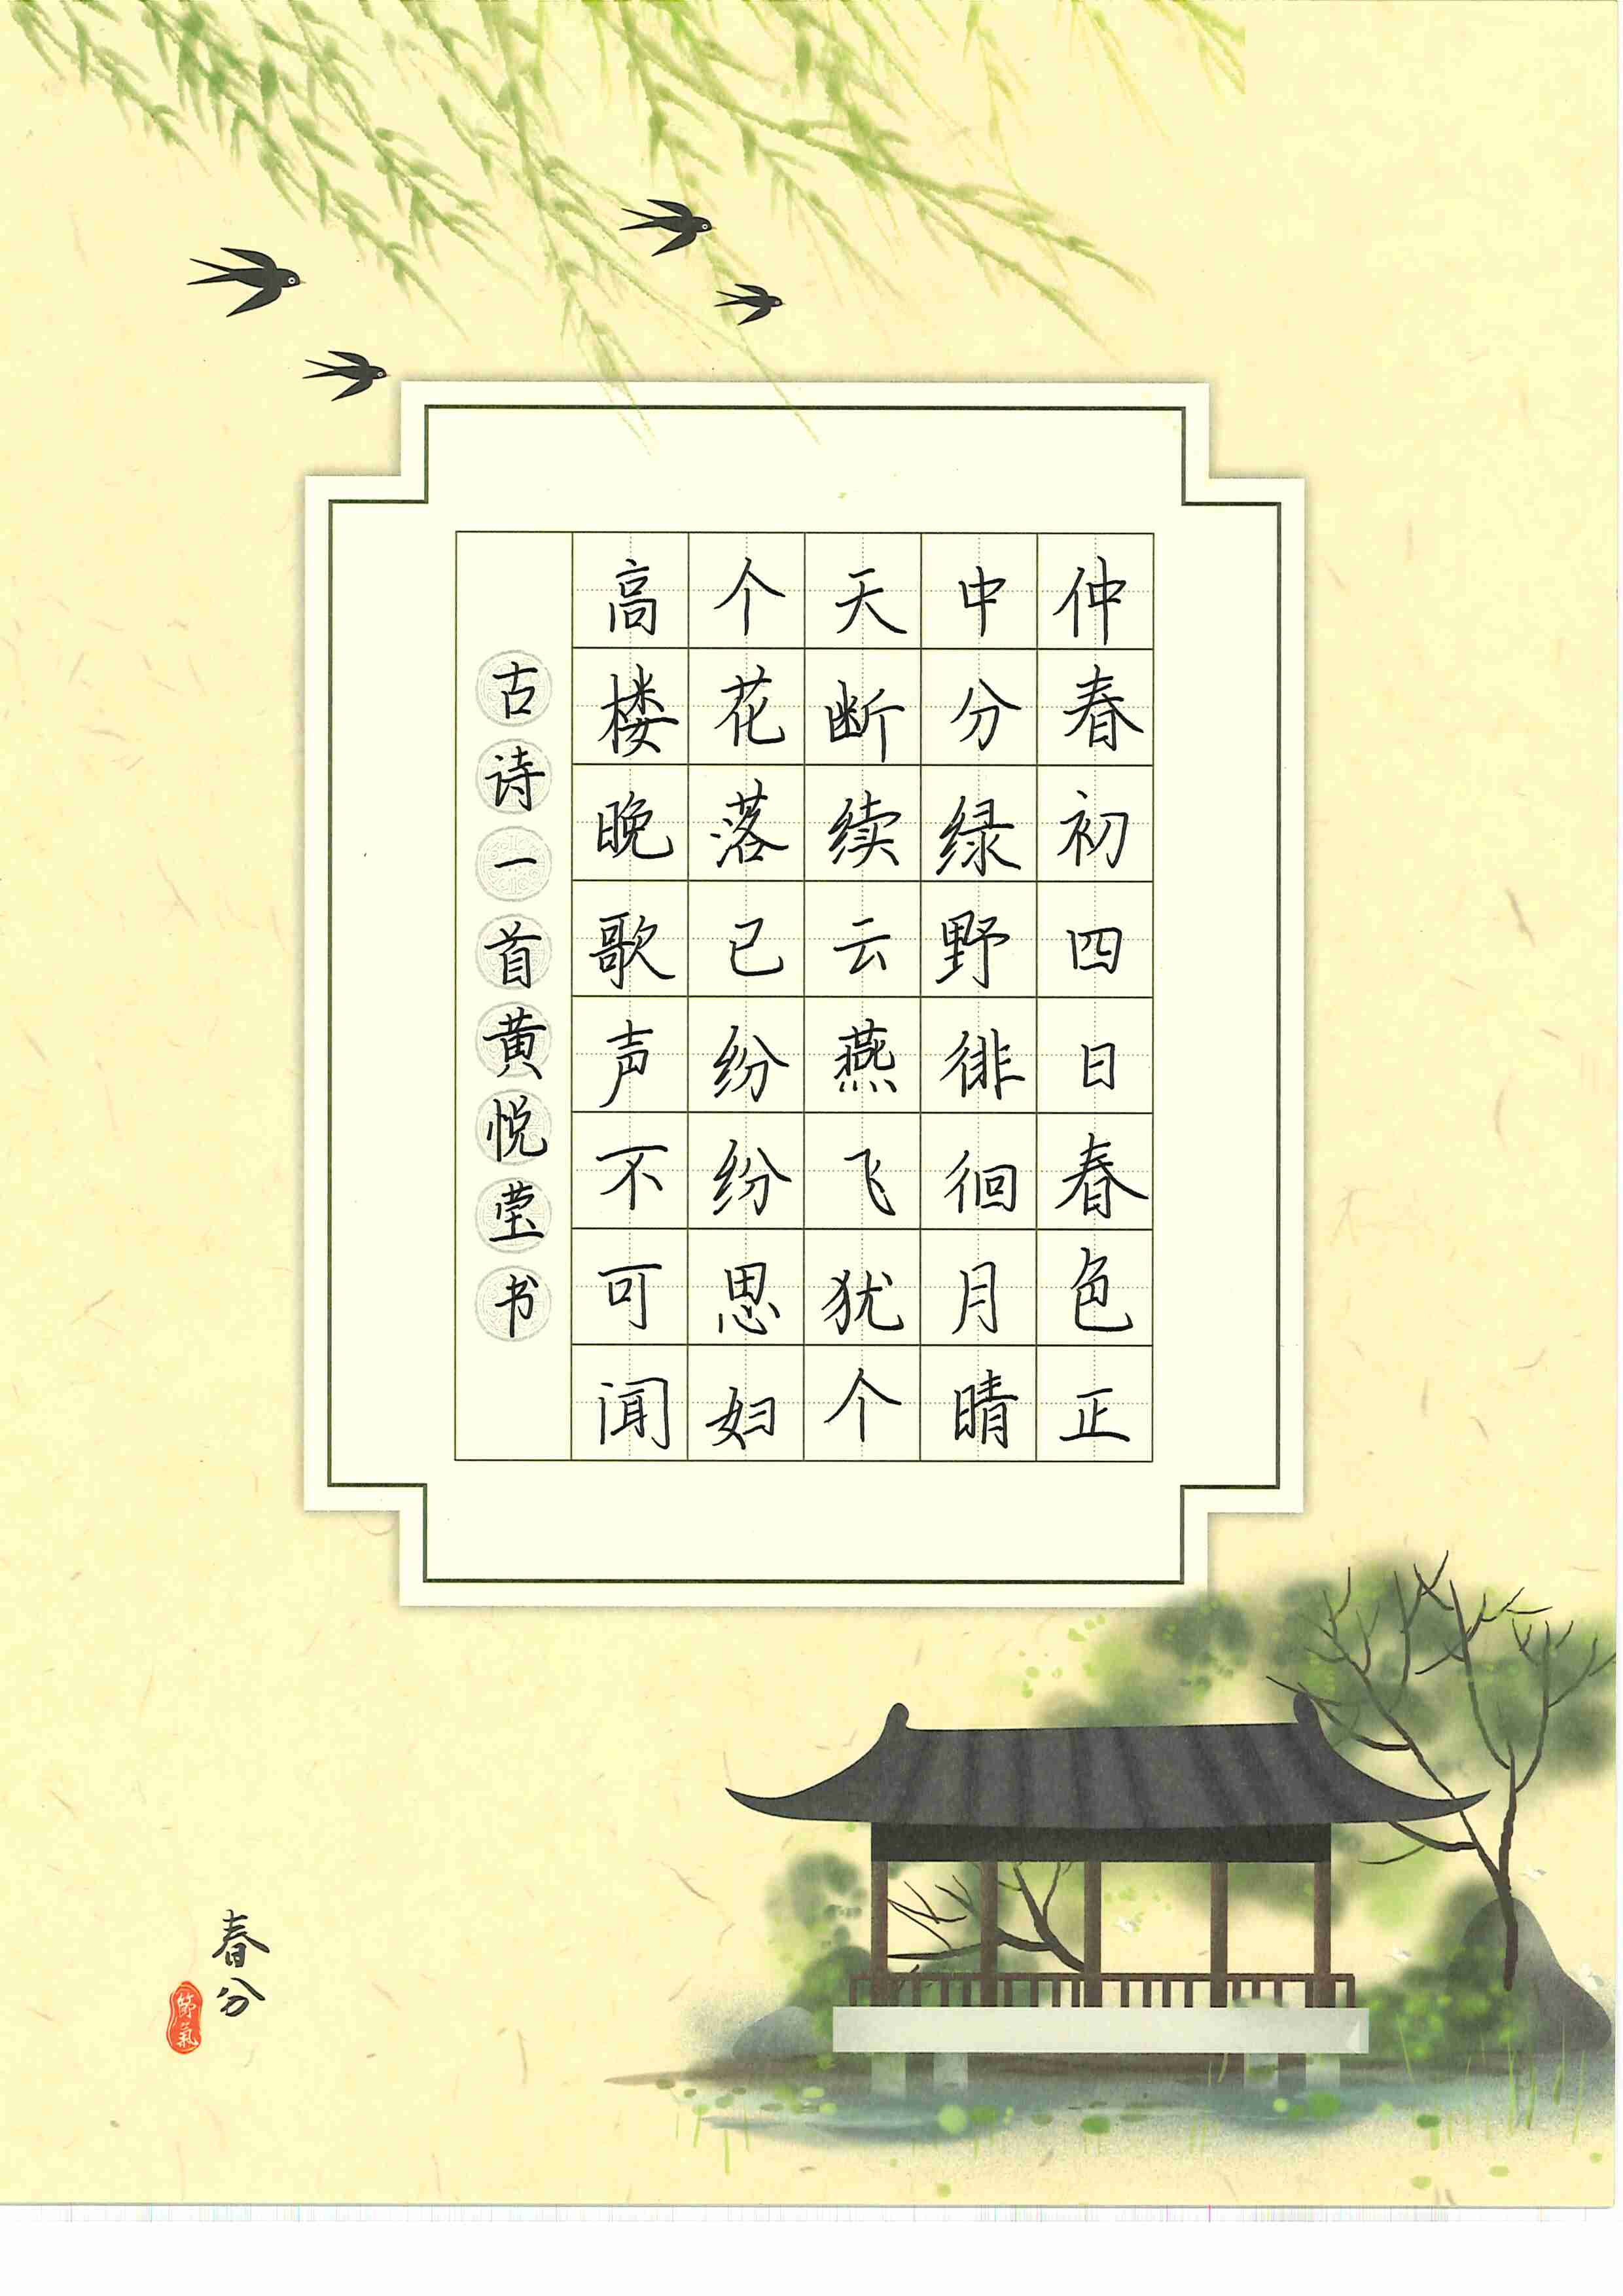 仲春初四日春色正
中分绿野徘徊月晴
天断续云燕飞犹个
个花落已纷纷思妇
高楼晚歌声不可闻
古诗一首黄悦莹书
春分
節氣